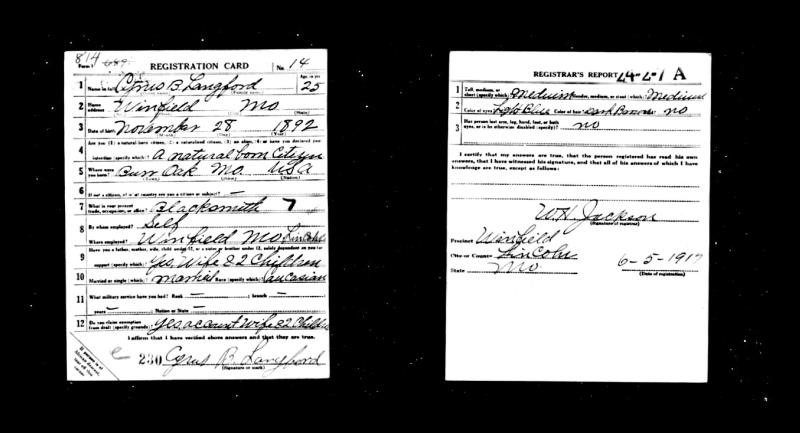 814
Form 1 689 REGISTRATION CARD No. 14
1 Name in full Cyrus B. Langford Age, in yrs 25
(Given name) (Family name)
2 Home address Winfield Mo
(State)
3 Date of birth November 28 1892
(Month) (Day) (Year)
4 Are you (1) a natural born citizen, (2) a naturalized citizen, (3) an alien, (4) or have you declared your
intention (specify which)? A natural born Citizen
5 Where were you born? Burr Oak Mo. USA
(Town) (State) (Nation)
6 If not a citizen, of what country are you a citizen or subject? —
7 What is your present trade, occupation, or office? Blacksmith 7
8 By whom employed? Self
Where employed? Winfield Mo Lincoln
9 Have you a father, mother, wife, child under 12, or a sister or brother under 12, solely dependent on you for
support (specify which)? Yes, Wife & 2 Children
10 Married or single (which)? Married Race (specify which)? Caucasian
11 What military service have you had? Rank — ; branch —
years — ; Nation or State —
12 Do you claim exemption from draft (specify grounds)? Yes, account Wife & 2 Children
I affirm that I have verified above answers and that they are true.
230 Cyrus B. Langford
(Signature or mark)
REGISTRAR'S REPORT 24-2-1 A
1 Tall, medium, or short (specify which)? Medium Slender, medium, or stout (which)? Medium
2 Color of eyes? Light Blue Color of hair? Dark Brown Bald? no
3 Has person lost arm, leg, hand, foot, or both eyes, or is he otherwise disabled (specify)? no
I certify that my answers are true, that the person registered has read his own
answers, that I have witnessed his signature, and that all of his answers of which I have
knowledge are true, except as follows:
W.H. Jackson
(Signature of registrar)
Precinct Winfield
City or County Lincoln
State Mo
6-5-1917
(Date of registration)